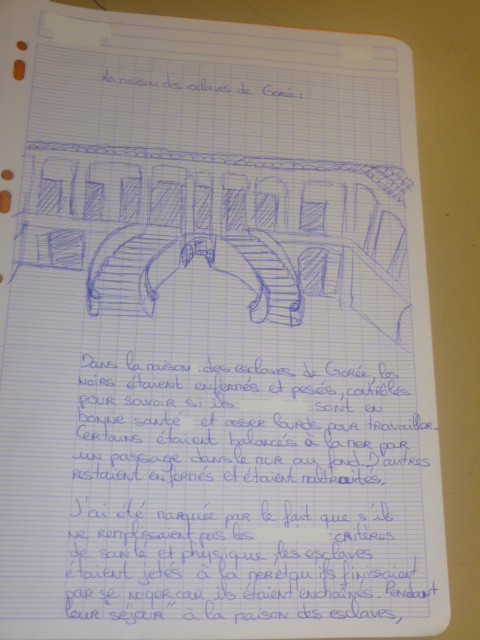 La maison des esclaves de Gorée:
Dans la maison des esclaves de Gorée, les
noirs étaient enfermés et pesés, contrôlés
pour savoir si ils sont en
bonne santé et asser lourds pour travailler.
Certains étaient balancés à la mer par
un passage dans le mur au fond. D'autres
restaient enfermés et étaient maltraités.
J'ai été marquée par le fait que s'ils
ne remplissaient pas les critères
de santé et physique, les esclaves
étaient jetés à la mer et qu'ils finissaient
par se noyer car ils étaient enchaînés. Pendant
leur "séjour" à la maison des esclaves,